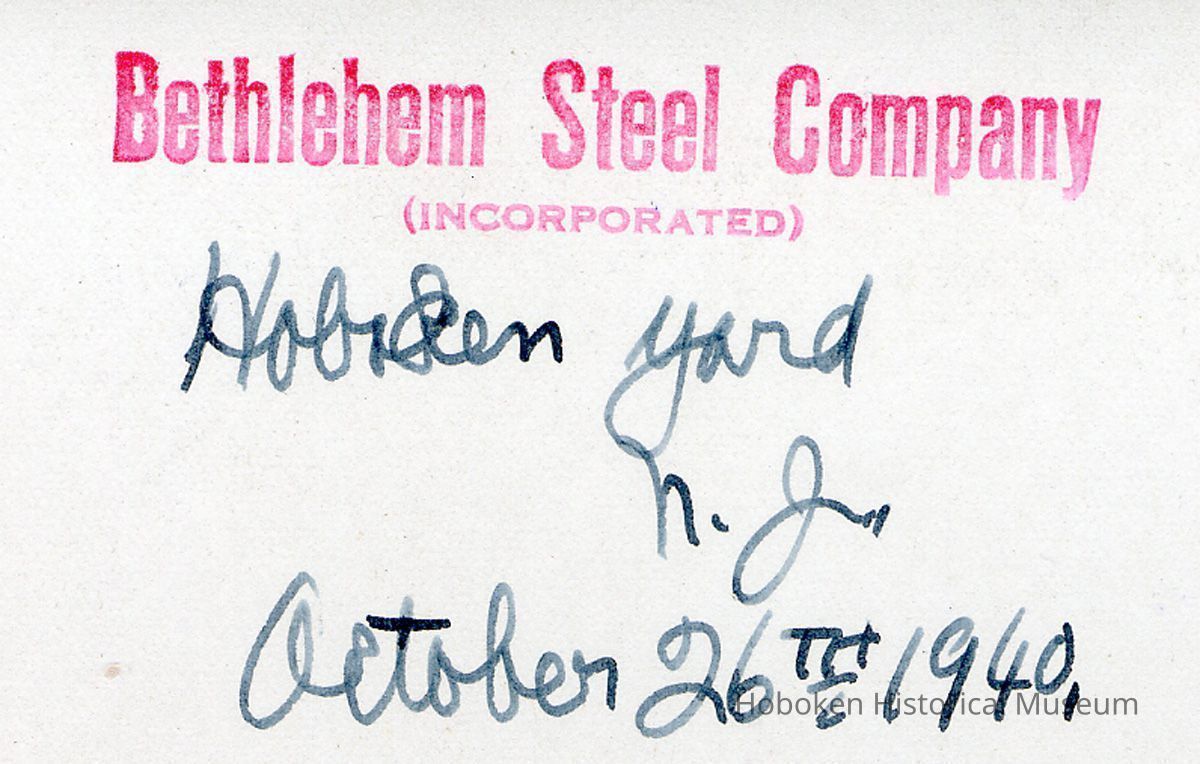 Bethlehem Steel Company
(INCORPORATED)
Hoboken Yard
N. J.
October 26TH 1940.
Hoboken Historical Museum